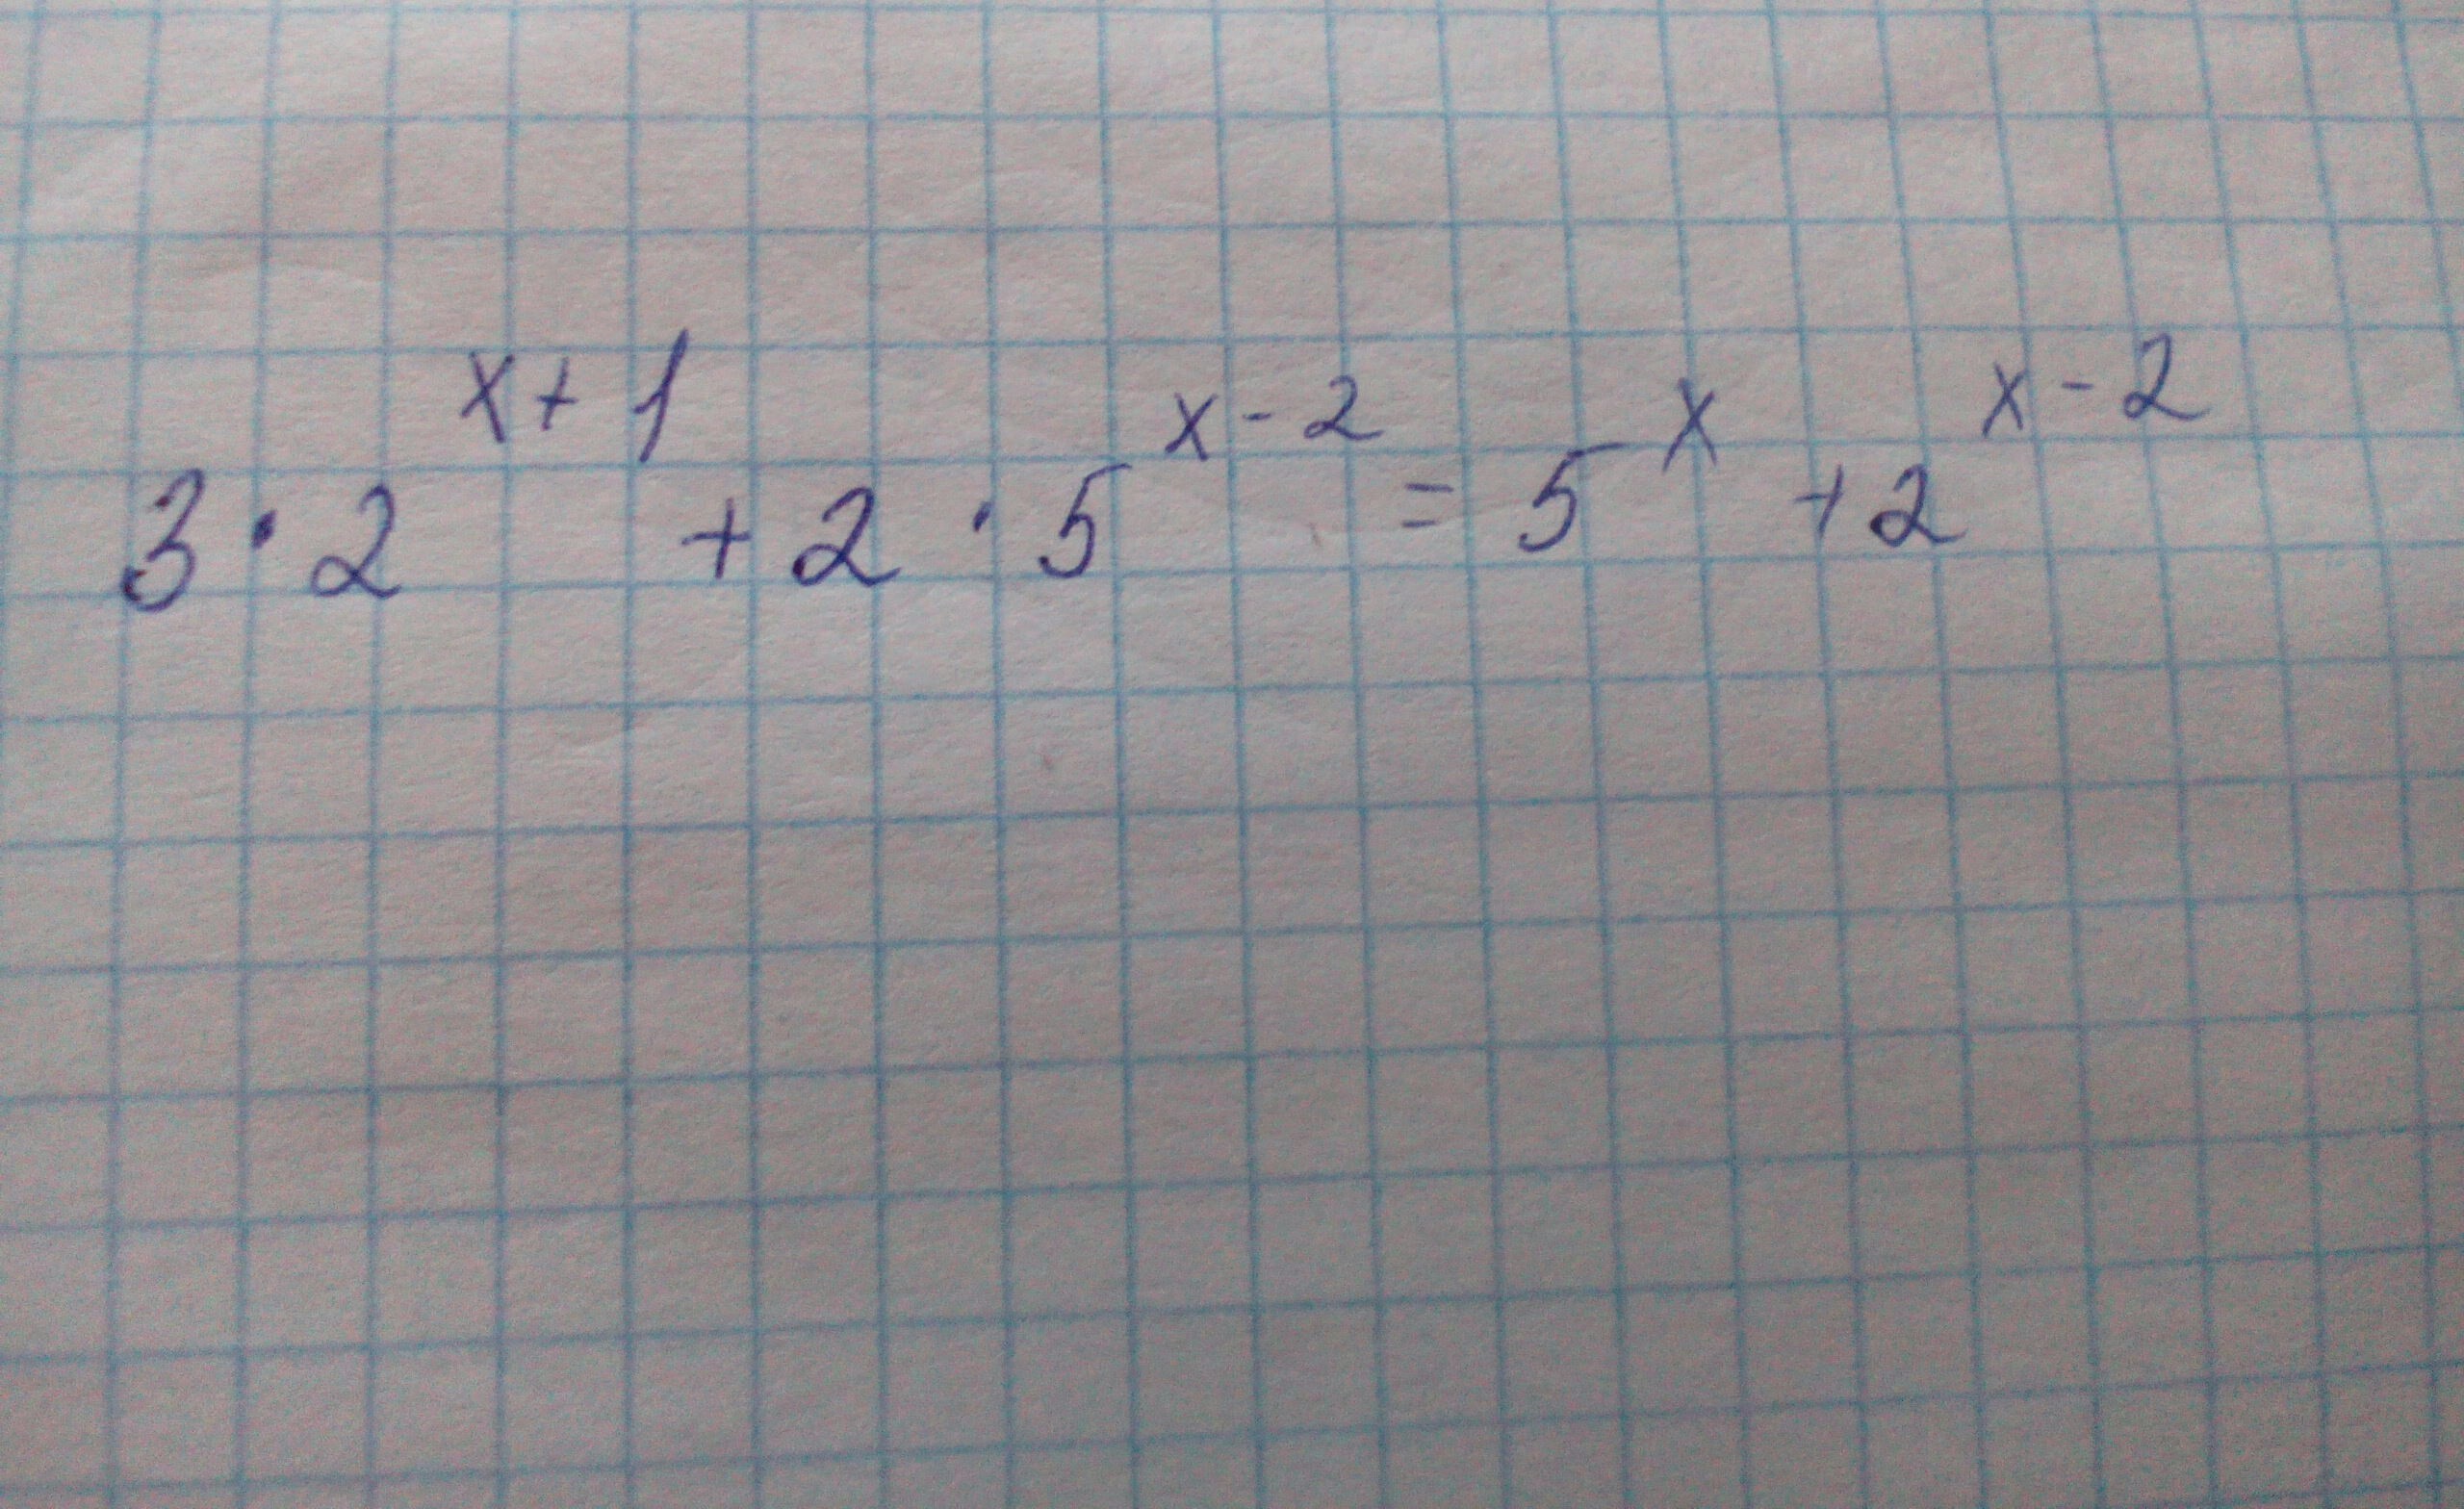 3 · 2^{x+1} + 2 · 5^{x-2} = 5^x + 2^{x-2}